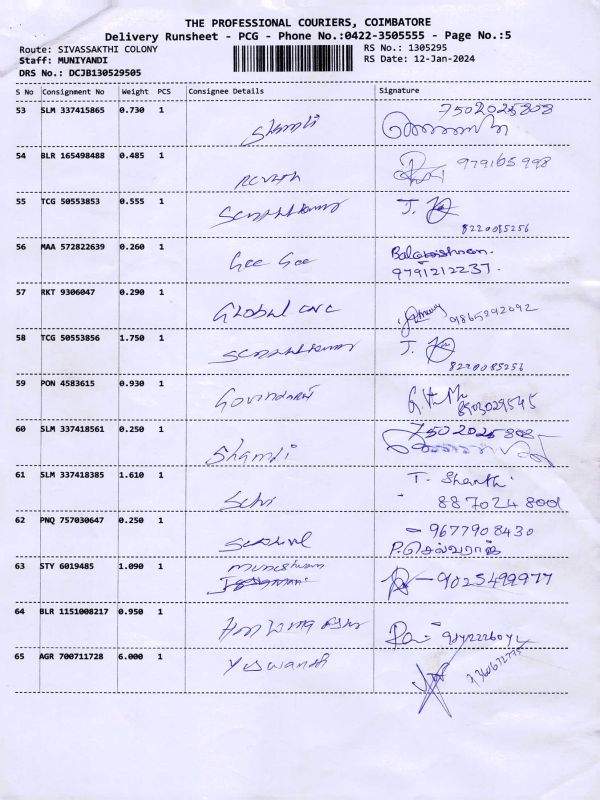 THE PROFESSIONAL COURIERS, COIMBATORE
Delivery Runsheet - PCG - Phone No.:0422-3505555 - Page No.:5
Route: SIVASSAKTHI COLONY RS No.: 1305295
Staff: MUNIYANDI RS Date: 12-Jan-2024
DRS No.: DCJB130529505
S No Consignment No Weight PCS Consignee Details Signature
7502025808
53 SLM 337415865 0.730 1 Shamli
54 BLR 165498488 0.485 1
55 TCG 50553853 0.555 1 J.
8220085256
56 MAA 572822639 0.260 1 Gee Gee Balakrishnan.
9791212237.
57 RKT 9306047 0.290 1 Global
9865292092
58 TCG 50553856 1.750 1 J.
8220085256
59 PON 4583615 0.930 1 Govindaraj
8903029545
60 SLM 337418561 0.250 1 7502025808
Shamli
61 SLM 337418385 1.610 1 T. Shanthi
8870248001
62 PNQ 757030647 0.250 1 - 9677908430
P.செல்வராஜ்
63 STY 6019485 1.090 1 Muneshwan
- 9025499977
64 BLR 1151008217 0.950 1
65 AGR 700711728 6.000 1 Yeswanth